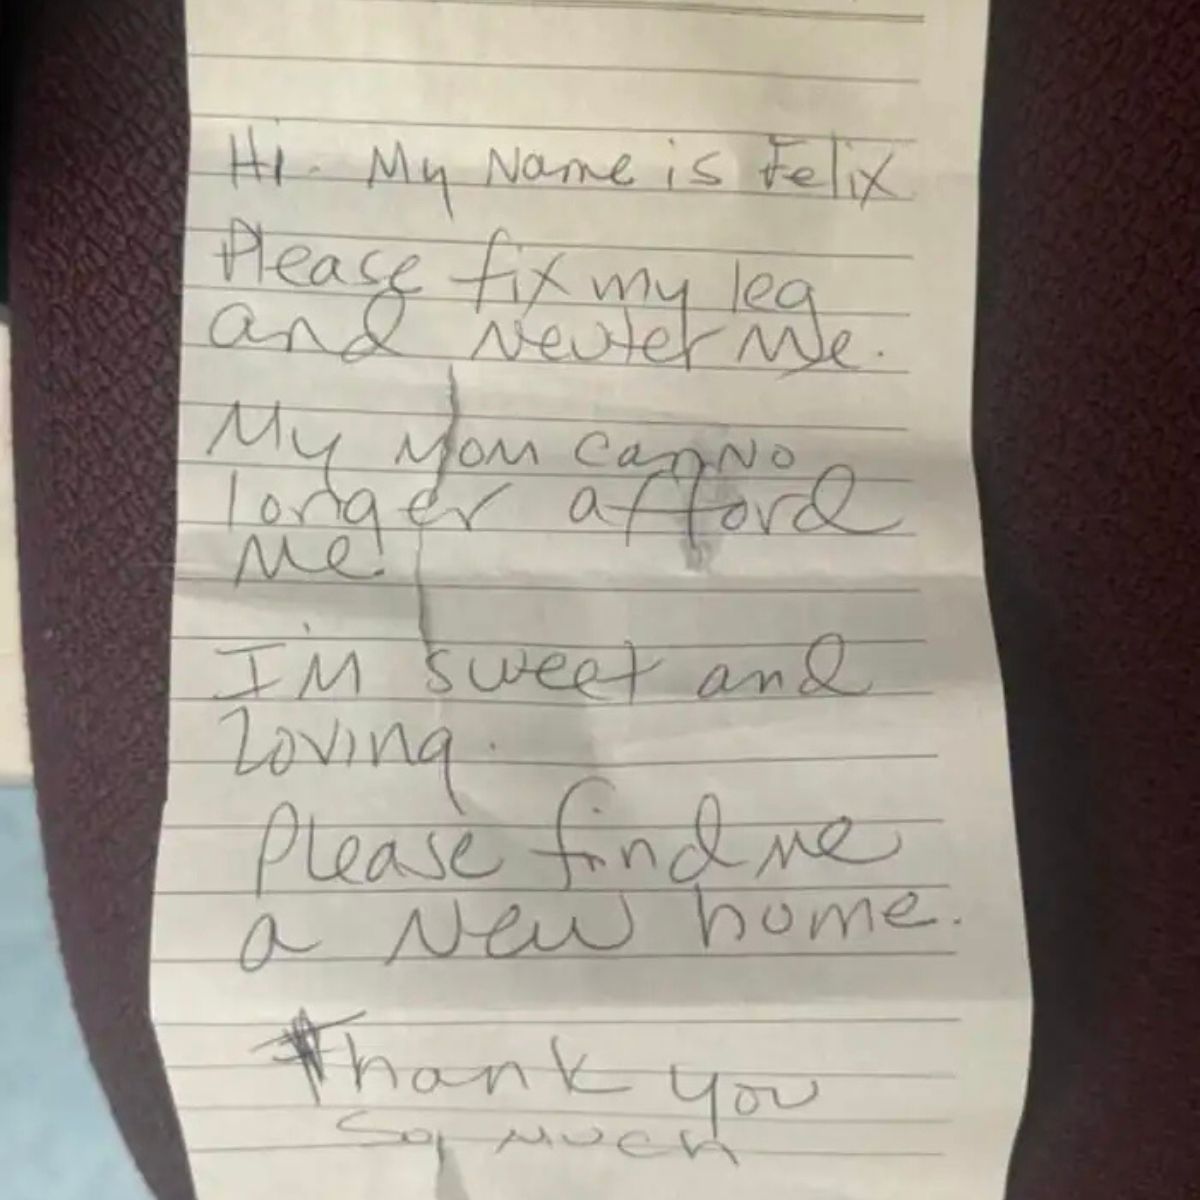 Hi. My Name is Felix
Please fix my leg
and Neuter Me.
My Mom can No
longer afford
Me!
I'M sweet and
Loving.
Please find me
a New home.
Thank you
So Much